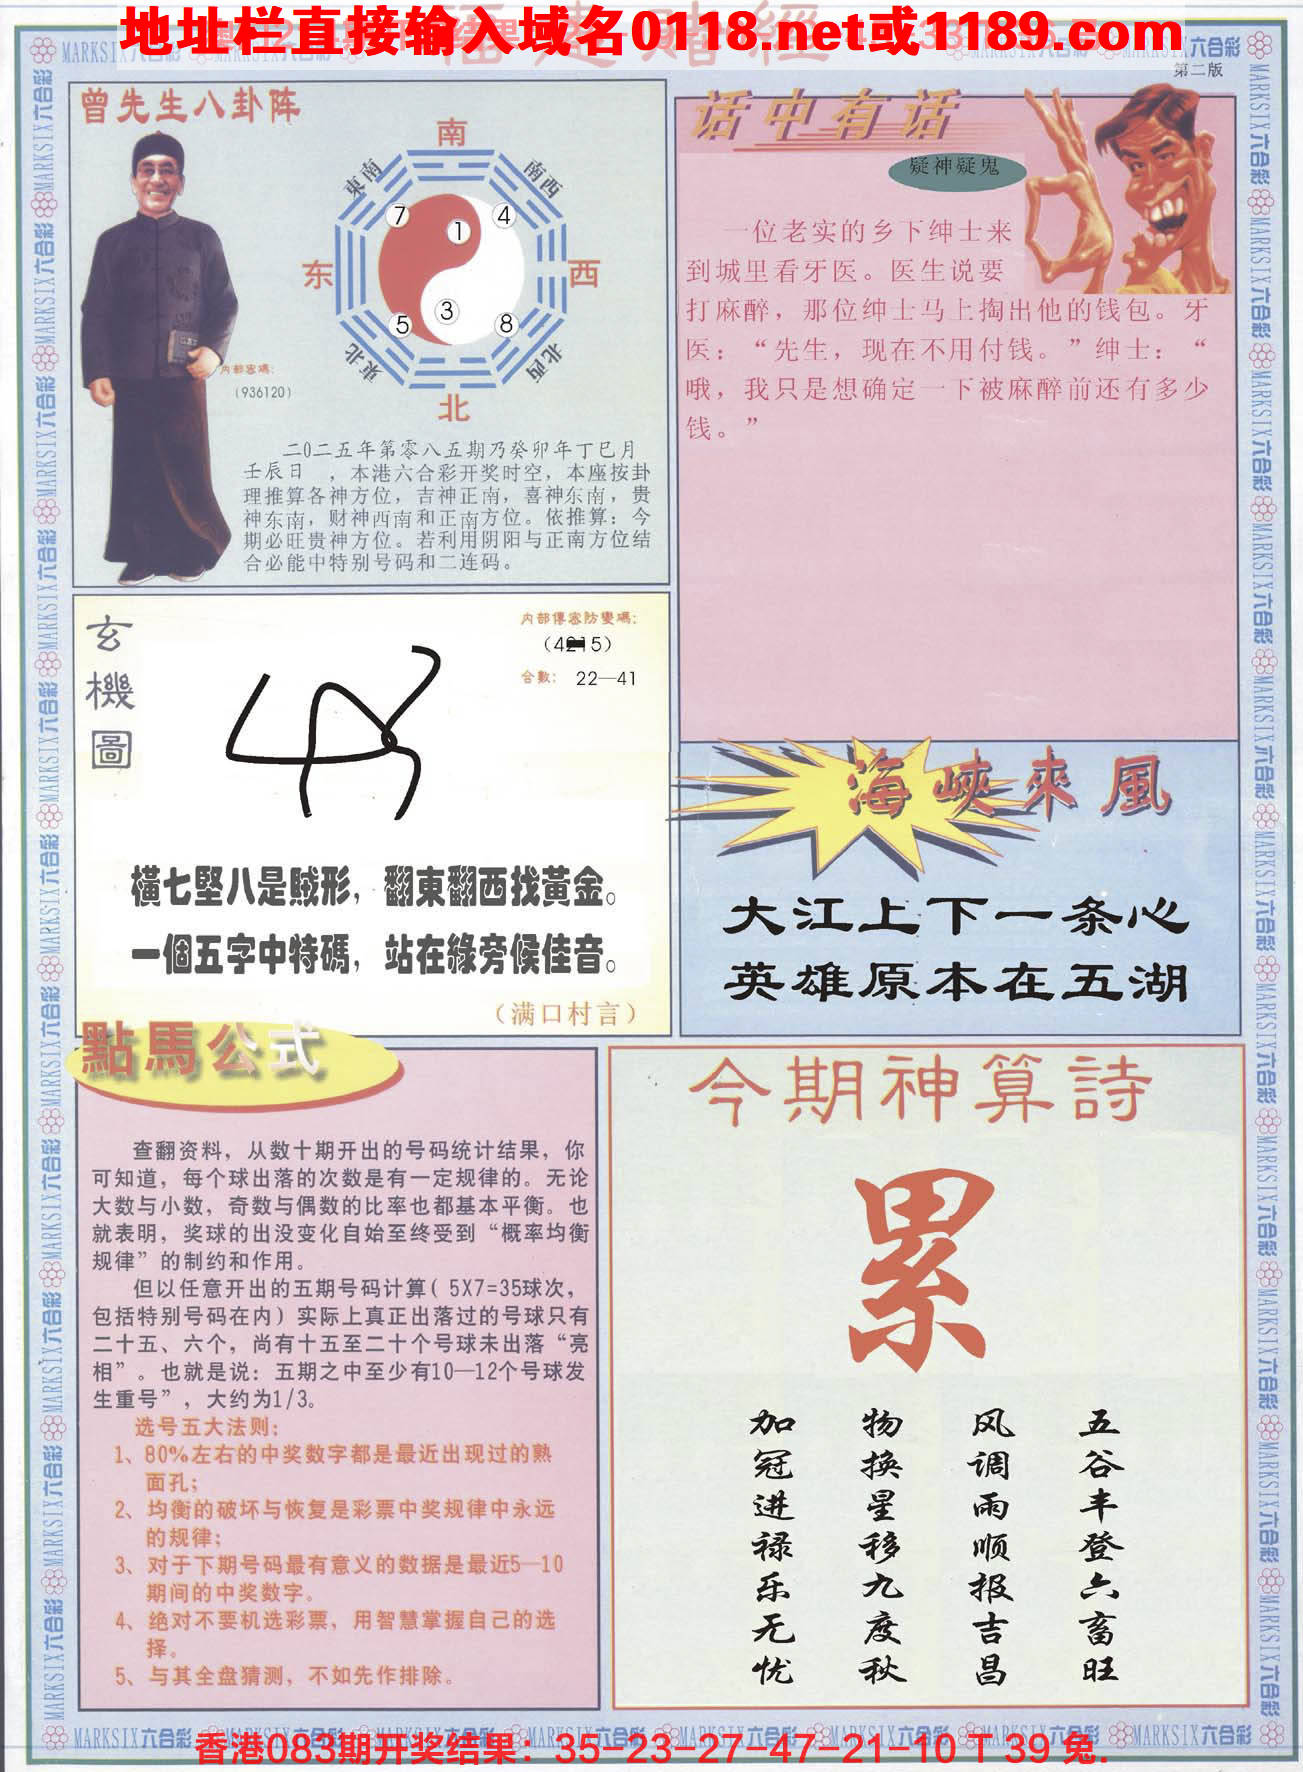 地址栏直接输入域名0118.net或1189.com
第二版
曾先生八卦阵
南
東南
南西
7
4
1
东
西
3
5
8
東北
北西
北
内部密碼：
(936120)
二0二五年第零八五期乃癸卯年丁巳月
壬辰日 ，本港六合彩开奖时空，本座按卦
理推算各神方位，吉神正南，喜神东南，贵
神东南，财神西南和正南方位。依推算：今
期必旺贵神方位。若利用阴阳与正南方位结
合必能中特别号码和二连码。
话中有话
疑神疑鬼
一位老实的乡下绅士来
到城里看牙医。医生说要
打麻醉，那位绅士马上掏出他的钱包。牙
医：“先生，现在不用付钱。”绅士：“
哦，我只是想确定一下被麻醉前还有多少
钱。”
玄機圖
内部傳密防變碼：
合數： 22—41
橫七堅八是賊形，翻東翻西找黃金。
一個五字中特碼，站在綠旁候佳音。
（满口村言）
海峽來風
大江上下一条心
英雄原本在五湖
點馬公式
查翻资料，从数十期开出的号码统计结果，你
可知道，每个球出落的次数是有一定规律的。无论
大数与小数，奇数与偶数的比率也都基本平衡。也
就表明，奖球的出没变化自始至终受到“概率均衡
规律”的制约和作用。
但以任意开出的五期号码计算( 5X7=35球次，
包括特别号码在内）实际上真正出落过的号球只有
二十五、六个，尚有十五至二十个号球未出落“亮
相”。也就是说：五期之中至少有10—12个号球发
生重号”，大约为1/3。
选号五大法则：
1、80%左右的中奖数字都是最近出现过的熟
面孔；
2、均衡的破坏与恢复是彩票中奖规律中永远
的规律；
3、对于下期号码最有意义的数据是最近5—10
期间的中奖数字。
4、绝对不要机选彩票，用智慧掌握自己的选
择。
5、与其全盘猜测，不如先作排除。
今期神算詩
累
五谷丰登六畜旺
风调雨顺报吉昌
物换星移九度秋
加冠进禄乐无忧
MARKSIX六合彩
香港083期开奖结果：35-23-27-47-21-10 T 39 兔.